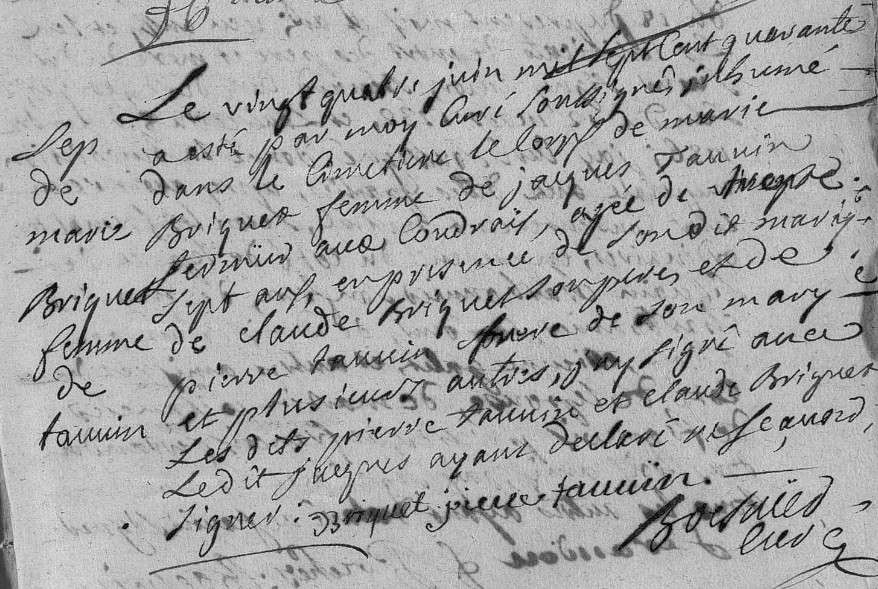 Le vingt quatre juin mil sept cent quarante
Sep a esté par moy Curé soussigné inhumé
de dans le Cimetiere le corps de marie
marie Briquet femme de jacques tauuin
Briquet fermier aux Coudrais, agée de trente
femme sept ans, en presence de son dit mary
de de claude Briquet son pere, et de
tauuin pierre tauuin frere de son mary
et plusieurs autres, j'ay signé auec
Les dits pierre tauuin et claude Briquet
Ledit jacques ayant declaré ne scauoir
signer.
Briquet pierre tauuin.